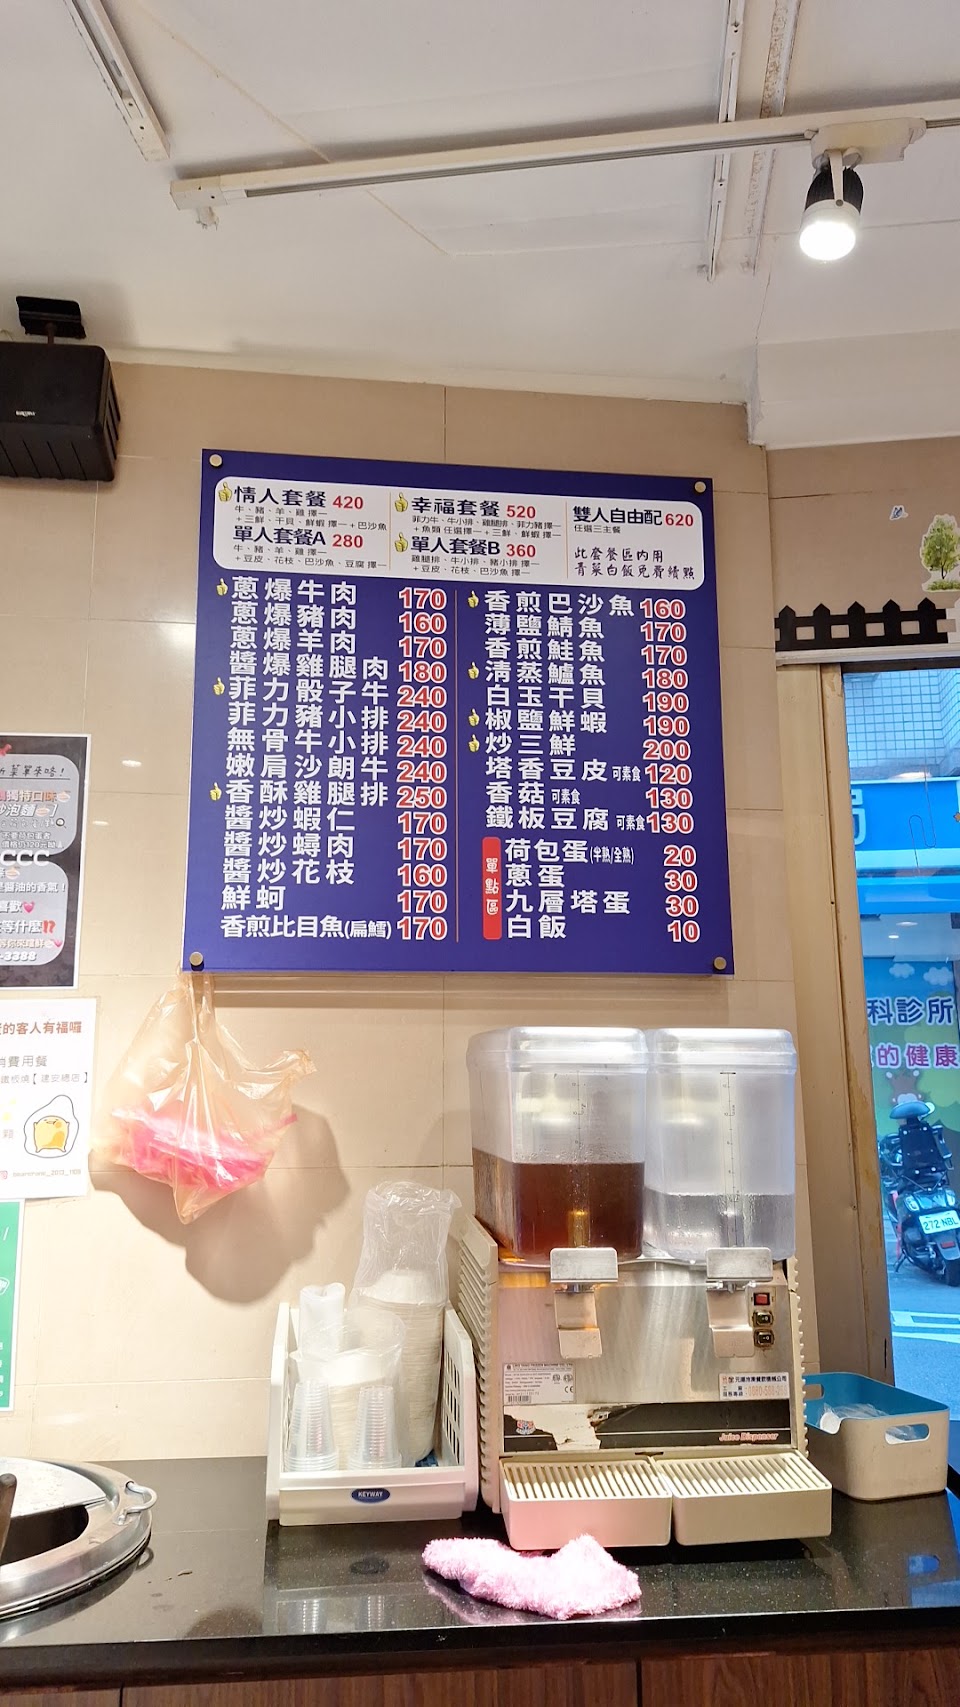 情人套餐 420
牛、豬、羊、雞 擇一
+三鮮、干貝、鮮蝦 擇一 + 巴沙魚
單人套餐A 280
牛、豬、羊、雞 擇一
+豆皮、花枝、巴沙魚、豆腐 擇一
幸福套餐 520
菲力牛、牛小排、雞腿排、菲力豬 擇一
+魚類 任選擇一 + 三鮮、鮮蝦 擇一
單人套餐B 360
雞腿排、牛小排、豬小排 擇一
+豆皮、花枝、巴沙魚 擇一
雙人自由配 620
任選三主餐
此套餐區內用
青菜白飯免費續點
蔥爆牛肉 170
蔥爆豬肉 160
蔥爆羊肉 170
醬爆雞腿肉 180
菲力骰子牛 240
菲力豬小排 240
無骨牛小排 240
嫩肩沙朗牛 240
香酥雞腿排 250
醬炒蝦仁 170
醬炒蟳肉 170
醬炒花枝 160
鮮蚵 170
香煎比目魚(扁鱈) 170
香煎巴沙魚 160
薄鹽鯖魚 170
香煎鮭魚 170
清蒸鱸魚 180
白玉干貝 190
椒鹽鮮蝦 190
炒三鮮 200
塔香豆皮 可素食 120
香菇 可素食 130
鐵板豆腐 可素食 130
單點區
荷包蛋(半熟/全熟) 20
蔥蛋 30
九層塔蛋 30
白飯 10
獨特口味
炒泡麵
CCC
是醬油的香氣!
喜歡
等什麼
-3388
的客人有福囉
消費用餐
鐵板燒【建安總店】
科診所
的健康
272 NBL
KEYWAY
Juice Dispenser